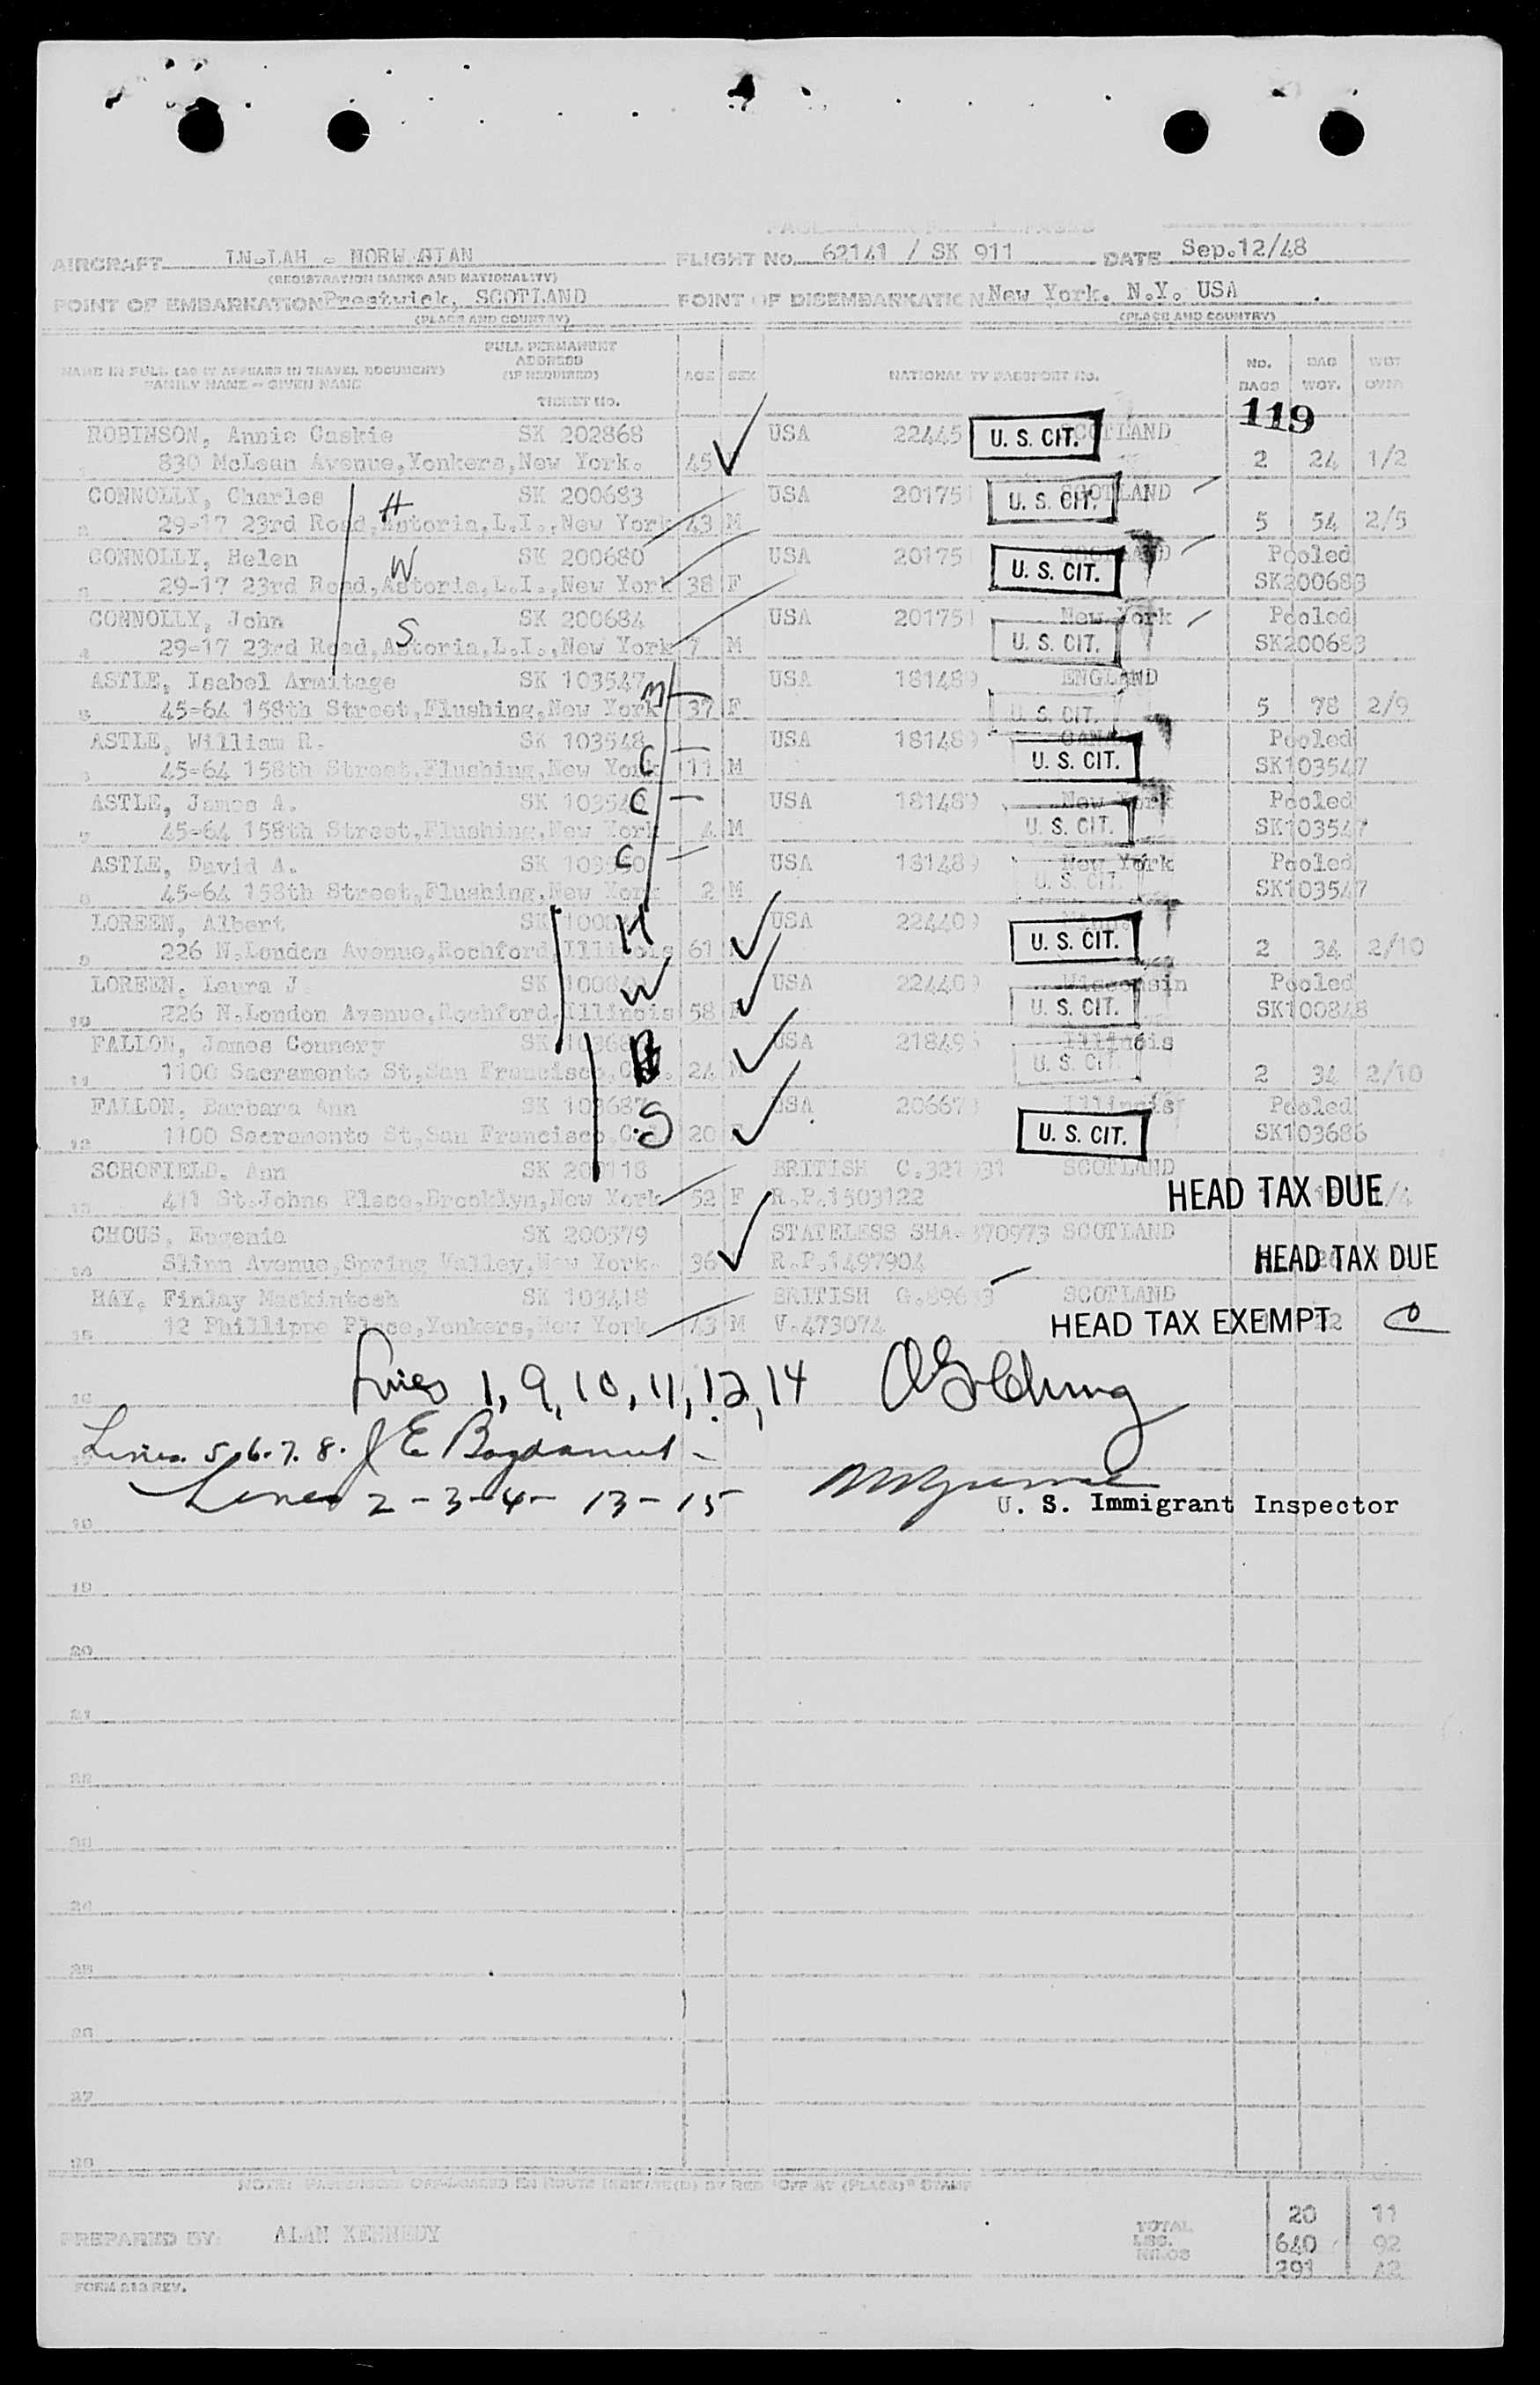 AIRCRAFT LN.IAH - NORWEGIAN FLIGHT NO. 62141 / SK 911 DATE Sep.12/48
(REGISTRATION MARKS AND NATIONALITY)
POINT OF EMBARKATION Prestwick, SCOTLAND POINT OF DISEMBARKATION New York. N.Y. USA
(PLACE AND COUNTRY) (PLACE AND COUNTRY)
FULL PERMANENT
ADDRESS
NAME IN FULL (AS IT APPEARS IN TRAVEL DOCUMENT) (IF REQUIRED) AGE SEX NATIONALITY PASSPORT NO. NO. BAG WGT
FAMILY NAME - GIVEN NAME BAGS WGT. OVER
TICKET NO.
119
ROBINSON, Annie Caskie SK 202868 USA 22445 U. S. CIT. SCOTLAND
1 830 McLean Avenue,Yonkers,New York. 45 2 24 1/2
CONNOLLY, Charles SK 200683 USA 20175 U. S. CIT. SCOTLAND
2 29-17 23rd Road,Astoria,L.I.,New York 43 M 5 54 2/5
H
CONNOLLY, Helen SK 200680 USA 20175 U. S. CIT. Pooled
3 29-17 23rd Road,Astoria,L.I.,New York 38 F SK200683
W
CONNOLLY, John SK 200684 USA 20175 New York Pooled
4 29-17 23rd Road,Astoria,L.I.,New York 7 M U. S. CIT. SK200683
S
ASTLE, Isabel Armitage SK 103547 USA 181489 ENGLAND
5 45-64 158th Street,Flushing,New York 37 F U. S. CIT. 5 78 2/9
M
ASTLE, William R. SK 103548 USA 181489 CANADA Pooled
6 45-64 158th Street,Flushing,New York 11 M U. S. CIT. SK103547
C
ASTLE, James A. USA 181489 New York Pooled
7 45-64 158th Street,Flushing,New York 4 M U. S. CIT. SK103547
C
ASTLE, David A. USA 181489 New York Pooled
8 45-64 158th Street,Flushing,New York 2 M U. S. CIT. SK103547
C
LOREEN, Albert USA 224409
9 226 N.London Avenue,Rochford,Illinois 61 U. S. CIT. 2 34 2/10
H
LOREEN, Laura J. USA 224409 Wisconsin Pooled
10 226 N.London Avenue,Rochford,Illinois 58 U. S. CIT. SK100848
W
FALLON, James Connery USA 21849 Illinois
11 1100 Sacramento St,San Francisco, 24 U. S. CIT. 2 34 2/10
FALLON, Barbara Ann SK 103687 USA 20667 Illinois Pooled
12 1100 Sacramento St,San Francisco, 20 U. S. CIT. SK103686
S
SCHOFIELD, Ann SK 200118 BRITISH SCOTLAND
13 411 St.Johns Place,Brooklyn,New York 52 F R.P.1503122 HEAD TAX DUE
CHOUS, Eugenia SK 200579 STATELESS SHA. 370973 SCOTLAND
14 Slinn Avenue,Spring Valley,New York. 36 R.P.1497904 HEAD TAX DUE
RAY, Finlay Mackintosh SK 103418 BRITISH SCOTLAND
15 12 Phillippe Place,Yonkers,New York 43 M V.473074 HEAD TAX EXEMPT
16 Lines 1, 9, 10, 11, 12, 14
Lines 5.6.7.8.
Lines 2-3-4- 13-15
U. S. Immigrant Inspector
19
20
21
22
23
24
25
26
27
28
NOTE: PASSENGERS OFF-LOADED EN ROUTE INDICATE(D) BY RED "OFF AT (PLACE)" STAMP
20 11
PREPARED BY: ALAN KENNEDY TOTAL
LBS. 640 92
KILOS 291 42
FORM 213 REV.